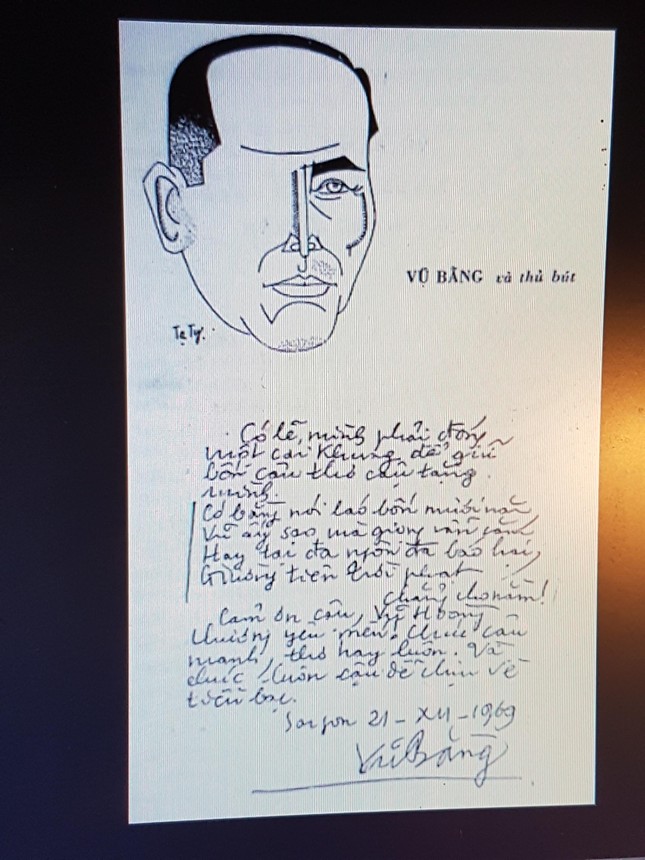 VŨ BẰNG và thủ bút
Tạ Tỵ.
Có lẽ, mình phải đóng
một cái khung để giữ
bốn câu thơ cậu tặng
mình.
Có bằng nói láo bốn mươi năm
Vũ ấy sao mà giọng vẫn
Hay tại đa ngôn đa báo hại,
Giường tiên trời phạt
chẳng cho nằm!
Cám ơn cậu,
thương yêu mến. Chúc cậu
mạnh, thơ hay luôn. Và
chúc luôn cậu dễ chịu về
tiền bạc.
Saigon 21 - XII - 1969
Vũ Bằng